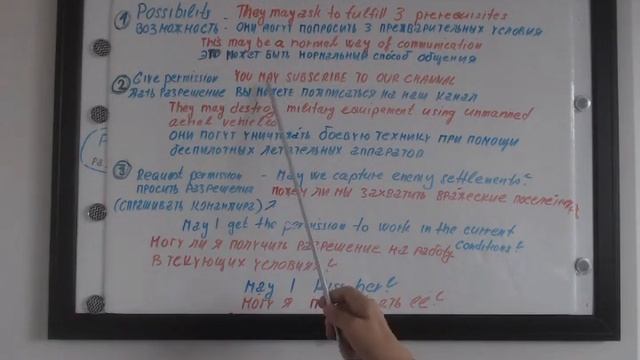 ① Possibility - They may ask to fulfill 3 prerequisites
ВОЗМОЖНОСТЬ - ОНИ МОГУТ ПОПРОСИТЬ 3 ПРЕДВАРИТЕЛЬНЫХ УСЛОВИЯ
This may be a normal way of
ЭТО МОЖЕТ БЫТЬ НОРМАЛЬНЫЙ СПОСОБ ОБЩЕНИЯ
② Give permission YOU MAY SUBSCRIBE TO OUR CHANNAL
ДАТЬ РАЗРЕШЕНИЕ ВЫ МОЖЕТЕ ПОДПИСАТЬСЯ НА НАШ КАНАЛ
They may destroy military using unmanned
aerial vehicles
ОНИ МОГУТ УНИЧТОЖАТЬ БОЕВУЮ ТЕХНИКУ ПРИ ПОМОЩИ
БЕСПИЛОТНЫХ ЛЕТАТЕЛЬНЫХ АППАРАТОВ
③ Request permission - May we capture enemy settlements?
ПРОСИТЬ РАЗРЕШЕНИЯ ЛИ МЫ ЗАХВАТИТЬ ВРАЖЕСКИЕ
(СПРАШИВАТЬ КОМАНДИРА)
May I get the permission to work in the current
conditions?
МОГУ ЛИ Я ПОЛУЧИТЬ РАЗРЕШЕНИЕ НА РАБОТУ
В ТЕКУЩИХ УСЛОВИЯХ?
May I her?
МОГУ Я ЕЁ?